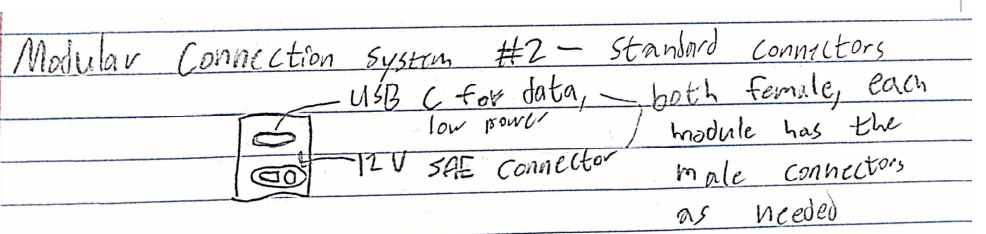 Modular Connection System #2 - Standard Connectors
USB C for data, low power
12V SAE Connector
both female, each
module has the
male connectors
as needed